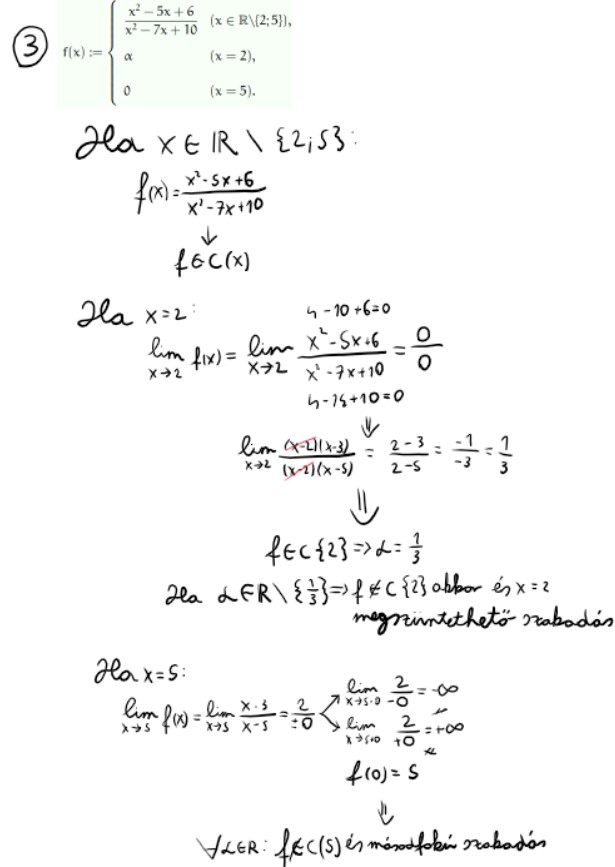 3
f(x) := { (x² − 5x + 6)/(x² − 7x + 10) (x ∈ ℝ\{2;5}),
α (x = 2),
0 (x = 5).
Ha x ∈ ℝ \ {2;5}:
f(x) = (x² - 5x + 6)/(x² - 7x + 10)
↓
f ∈ C(x)
Ha x = 2:
4 - 10 + 6 = 0
lim x→2 f(x) = lim x→2 (x² - 5x + 6)/(x² - 7x + 10) = 0/0
4 - 14 + 10 = 0
⇓
lim x→2 (x-2)(x-3)/(x-2)(x-5) = (2-3)/(2-5) = -1/-3 = 1/3
⇓
f ∈ C{2} => α = 1/3
Ha α ∈ R \ {1/3} => f ∉ C{2} akkor és x = 2
megszüntethető szakadás
Ha x = 5:
lim x→5 f(x) = lim x→5 (x-3)/(x-5) = 2/±0
↗ lim x→5-0 2/-0 = -∞
↘ lim x→5+0 2/+0 = +∞
f(0) = 5
⇓
∀α∈R: f ∉ C(5) és másodfokú szakadás